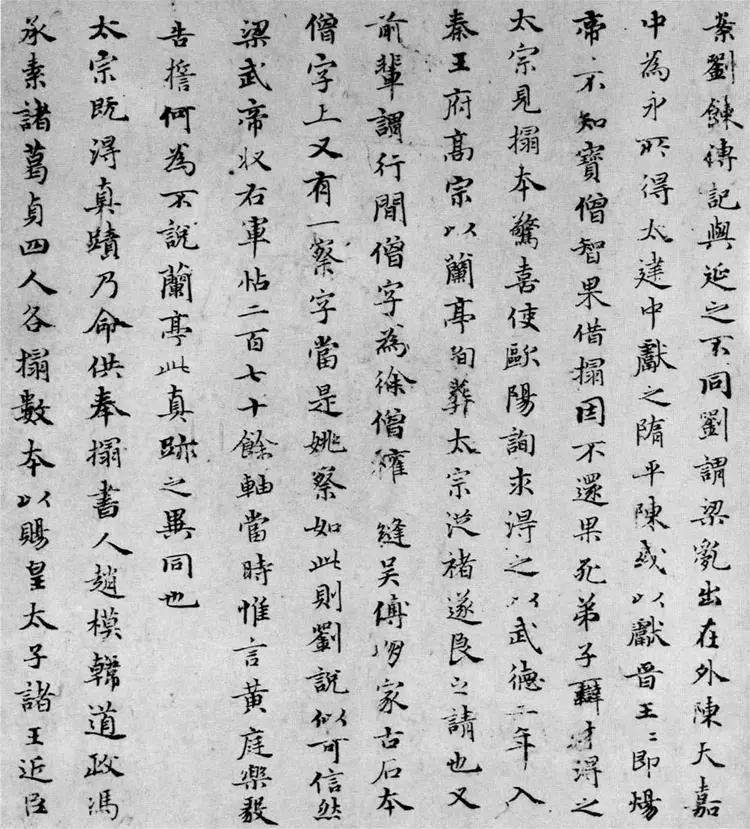 案劉餗傳記與延之不同劉謂梁亂出在外陳天嘉
中為永所得太建中獻之隋平陳或以獻晉王〻即煬
帝帝不知寶僧智果借搨因不還果死弟子辯才得之
太宗見搨本驚喜使歐陽詢求得之以武德二年入
秦王府高宗以蘭亭殉葬太宗從褚遂良之請也又
前輩謂行間僧字為徐僧權縫吳傅朋家古石本
僧字上又有一察字當是姚察如此則劉說似可信然
梁武帝收右軍帖二百七十餘軸當時惟言黃庭樂毅
告誓何為不說蘭亭此真跡之異同也
太宗既得真蹟乃命供奉搨書人趙模韓道政馮
承素諸葛貞四人各搨數本以賜皇太子諸王近臣